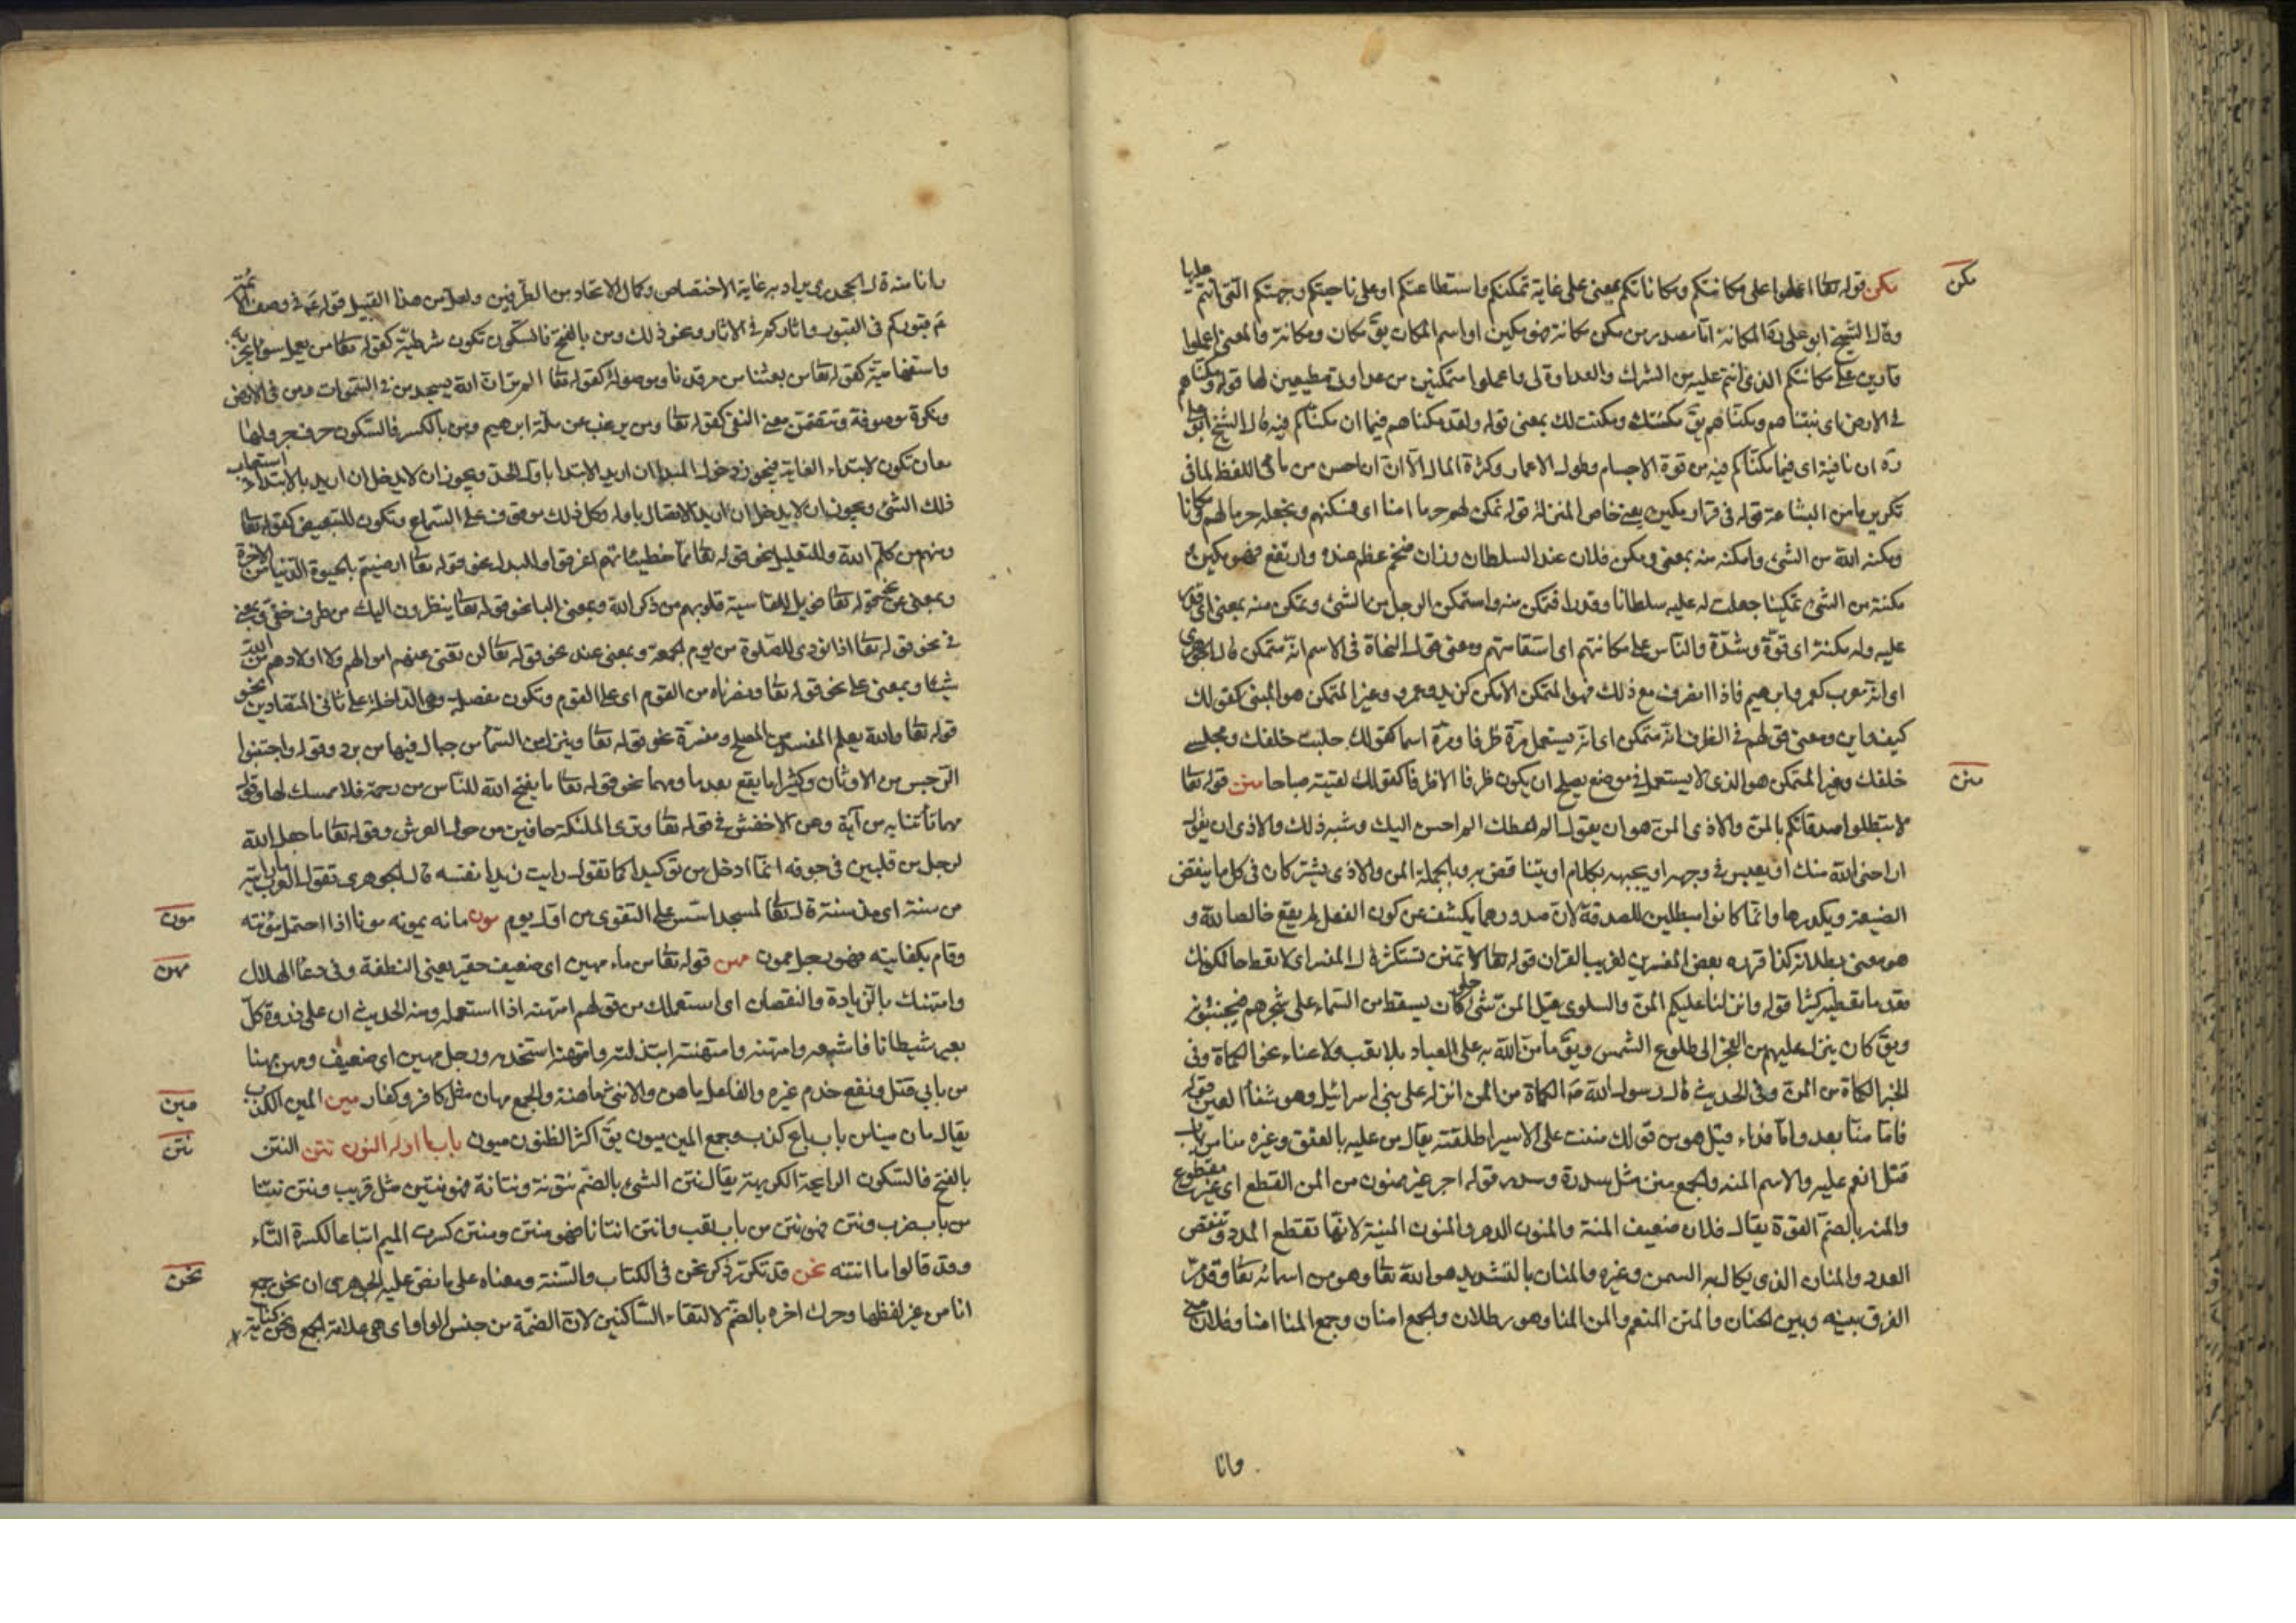 مكن
مكن قوله تعا اعملوا على مكانتكم ومكاناتكم بمعنى على غاية تمكنكم واستطاعتكم او على ناحيتكم وجهتكم التى انتم عليها
وقال الشيخ ابو على ره المكانة اما مصدر من مكن مكانة فهو مكين او اسم المكان يق مكان ومكانة والمعنى اعملوا
قارين على مكانتكم الذى انتم عليه من الشرك والعداوة لى واعملوا متمكنين من عداوتى مطيعين لها قوله ومكناهم
فى الارض اى ثبتناهم وملكناهم يق مكنتك ومكنت لك بمعنى قوله ولقد مكناهم فيما ان مكناكم فيه قال الشيخ ابو على
ره ان نافية اى فيما مكناكم فيه من قوة الاجسام وطول الاعمار وكثرة المال الا ان ان احسن من ما فى اللفظ لما فى
تكرير ما من البشاعة قوله فى قرار مكين يعنى خاص المنزلة قوله نمكن لهم حرما امنا اى نسكنهم ونجعله حرما لهم ومكانا
ومكنه الله من الشئ وامكنه منه بمعنى ومكن فلان عند السلطان وزان ضخم عظم عنده وارتفع فهو مكين و
مكنته من الشئ تمكينا جعلت له عليه سلطانا وقدرا فتمكن منه واستمكن الرجل من الشئ وتمكن منه بمعنى اى قدر
عليه وله مكنة اى قوة وشدة والناس على مكانتهم اى استقامتهم ومعنى قول النحاة فى الاسم انه متمكن قال الجوهرى
اى انه معرب كعمر وابرهيم فاذا انصرف مع ذلك فهو المتمكن الامكن كزيد وعمرو وغير المتمكن هو المبنى كقولك
كيف واين ومعنى قولهم فى الظرف انه متمكن اى انه يستعمل مرة ظرفا ومرة اسما كقولك جلست خلفك ومجلسى
منن
خلفك وغير المتمكن هو الذى لا يستعمل فى موضع يصلح ان يكون ظرفا الا ظرفا كقولك لقيته صباحا منن قوله تعا
لا تبطلوا صدقاتكم بالمن والاذى المن هو ان يقول الم اعطك الم احسن اليك وشبه ذلك والاذى ان يقول
اراحنى الله منك او يعبس فى وجهه او يجبهه بكلام او يتناقص به وبالجملة المن والاذى يشتركان فى كل ما ينقض
الصنيعة ويكدرها وانما كانوا مبطلين للصدقة لان صدورهما يكشف عن كون الفعل لم يقع خالصا لله و
هو معنى بطلانه كذا قرره بعض المفسرين لغريب القران قوله تعا لا تمنن تستكثر قال المفسر اى لا تعط حال كونك
تعد ما تعطيه كثيرا قوله وانزلنا عليكم المن والسلوى قيل المن شئ حلو كان يسقط من السماء على شجرهم فيجتنونه
ويق كان ينزل عليهم من الفجر الى طلوع الشمس ويق ما من الله به على العباد بلا تعب ولا عناء نحو الكماة وفى
الخبر الكماة من المن وفى الحديث قال رسول الله ص الكماة من المن انزله على بنى اسرائيل وهو شفأ العين قوله
فاما منا بعد واما فداء قيل هو من قولك مننت على الاسير اطلقته يقال من عليه بالعتق وغيره منا من باب
قتل انعم عليه والاسم المنه والجمع منن مثل سدرة وسدر قوله اجر غير ممنون من المن القطع اى غير مقطوع
والمنه بالضم القوة يقال فلان ضعيف المنة والمنون الدهر والمنون المنية لانها تقطع المدد وتنقص
العدد والمنان الذى يكال به السمن وغيره والمنان بالتشديد هو الله تعا وهو من اسمائه تعا وقد مر
الفرق بينه وبين الحنان والمنن المنعم والمن المنا وهو رطلان والجمع امنان وجمع المنا امنا وفلان منى
وانا
وانا منه قال الجوهرى يراد به غاية الاختصاص وكمال الاتحاد من الطرفين ولعل من هذا القبيل قوله ع فى وصف الائمة
ع قبوركم فى القبور واثاركم فى الاثار ونحو ذلك ومن بالفتح فالسكون تكون شرطية كقوله تعا من يعمل سوءا يجز به
واستفهامية كقوله تعا من بعثنا من مرقدنا وموصولة كقوله تعا الم تر ان الله يسجد من فى السموات ومن فى الارض
ونكرة موصوفة وتتضمن معنى النفى كقوله تعا ومن يرغب عن ملة ابرهيم ومن بالكسر فالسكون حرف جر ولها
معان تكون لابتداء الغاية فيجوز دخول المبدا ان اريد الابتدا باول الحد ويجوز ان لا يدخل ان اريد بالابتداء استيعاب
ذلك الشئ ويجوز ان لا يدخل ان اريد الاتصال باوله وكل ذلك موقوف على السماع وتكون للتبعيض كقوله تعا
ومنهم من كلم الله وللتعليل نحو قوله تعا مما خطيئاتهم اغرقوا وللبدل نحو قوله تعا ارضيتم بالحيوة الدنيا من الاخرة
وبمعنى عن نحو قوله تعا فويل للقاسية قلوبهم من ذكر الله وبمعنى البا نحو قوله تعا ينظرون اليك من طرف خفى وبمعنى
فى نحو قوله تعا اذا نودى للصلوة من يوم الجمعة وبمعنى عند نحو قوله تعا لن تغنى عنهم اموالهم ولا اولادهم من الله
شيئا وبمعنى على نحو قوله تعا ونصرناه من القوم اى على القوم وتكون مفصلة وهى الداخلة على ثانى المتضادين نحو
قوله تعا والله يعلم المفسد من المصلح ومفسرة نحو قوله تعا وينزل من السمآ من جبال فيها من برد وقوله واجتنبوا
الرجس من الاوثان وكثيرا ما يقع بعد ما ومهما نحو قوله تعا ما يفتح الله للناس من رحمة فلا ممسك لها وقوله
مهما تأتنا به من آية وعن الاخفش فى قوله تعا وترى الملئكة حافين من حول العرش وقوله تعا ما جعل الله
لرجل من قلبين فى جوفه انما ادخل من توكيدا كما تقول رايت زيدا نفسه قال الجوهرى تقول العرب ما رايته
مون
من سنة اى منذ سنة قال تعا لمسجد اسس على التقوى من اول يوم مون مانه يمونه مونا اذا احتمل مؤنته
مهن
وقام بكفايته فهو رجل ممون مهن قوله تعا من ماء مهين اى ضعيف حقير يعنى النطفة وفى دعآ الهلال
وامتهنك بالزيادة والنقصان اى استعملك من قولهم امتهنه اذا استعمله ومنه الحديث ان على ذروة كل
بعير شيطانا فاشبعه وامتهنه وامتهنته ابتذلته وامتهنه استخدمه ورجل مهين اى ضعيف ومهن مهنا
مين
من بابي قتل ونفع خدم غيره والفاعل ماهن والانثى ماهنة والجمع مهان مثل كافر وكفار مين المين الكذب
نتن
يقال مان مينا من باب باع كذب وجمع المين ميون يق اكثر الظنون ميون باب ما اوله النون نتن النتن
بالفتح فالسكون الرايحة الكريهة يقال نتن الشئ بالضم نتونة ونتانة فهو نتين مثل قريب ونتن نتنا
من باب ضرب ونتن فهو نتن من باب تعب وانتن انتانا فهو منتن ومنتن كسرت الميم اتباعا لكسرة التاء
نحن
وقد قالوا ما انتنه نحن قد تكرر ذكر نحن فى الكتاب والسنة ومعناه على ما نص عليه الجوهرى ان نحن جمع
انا من غير لفظها وحرك اخره بالضم لالتقاء الساكنين لان الضمة من جنس الواو اى هى علامة الجمع ونحن كناية